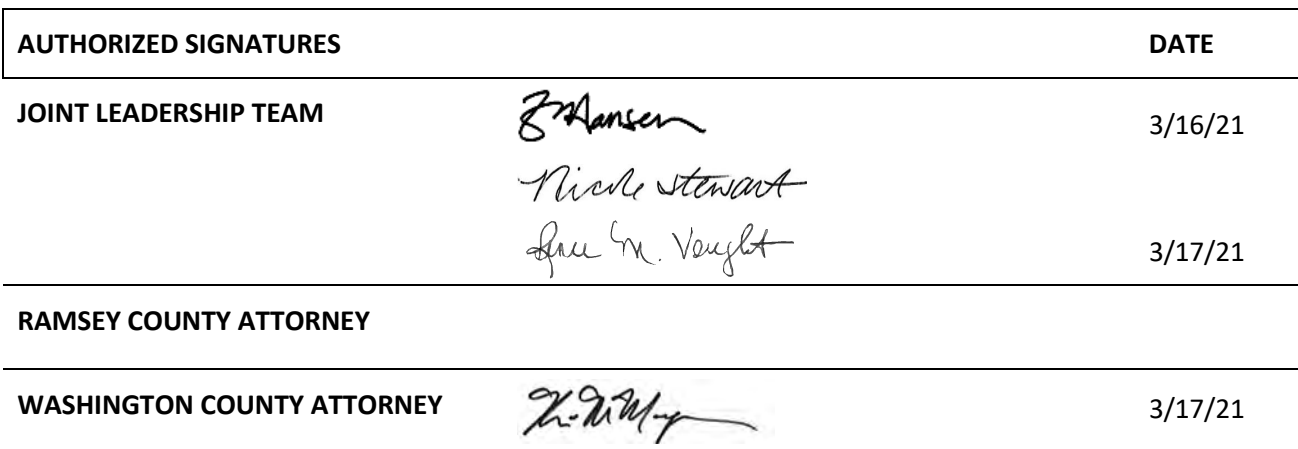 AUTHORIZED SIGNATURES DATE
JOINT LEADERSHIP TEAM Hansen 3/16/21
Nicole Stewart
M. Vought 3/17/21
RAMSEY COUNTY ATTORNEY
WASHINGTON COUNTY ATTORNEY 3/17/21